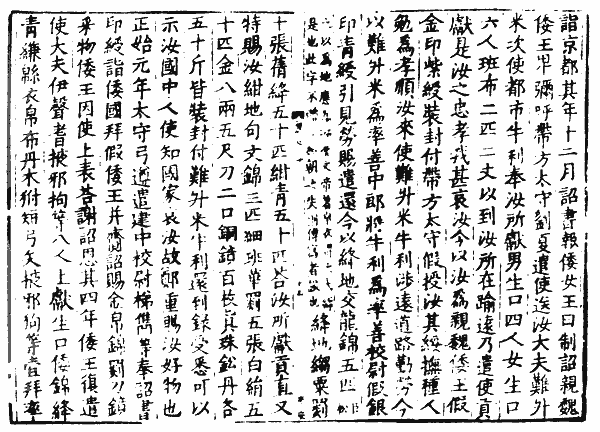 詣京都其年十二月詔書報倭女王曰制詔親魏
倭王卑彌呼帶方太守劉夏遣使送汝大夫難升
米次使都市牛利奉汝所獻男生口四人女生口
六人班布二匹二丈以到汝所在踰遠乃遣使貢
獻是汝之忠孝我甚哀汝今以汝為親魏倭王假
金印紫綬裝封付帶方太守假授汝其綏撫種人
勉為孝順汝來使難升米牛利涉遠道路勤勞今
以難升米為率善中郎將牛利為率善校尉假銀
印青綬引見勞賜遣還今以絳地交龍錦五匹
以為地應為
是也此字不
絳地縐粟罽
十張蒨絳五十匹紺青五十匹答汝所獻貢直又
特賜汝紺地句文錦三匹細班華罽五張白絹五
十匹金八兩五尺刀二口銅鏡百枚真珠鈆丹各
五十斤皆裝封付難升米牛利還到錄受悉可以
示汝國中人使知國家哀汝故鄭重賜汝好物也
正始元年太守弓遵遣建中校尉梯儁等奉詔書
印綬詣倭國拜假倭王并齎詔賜金帛錦罽刀鏡
采物倭王因使上表荅謝詔恩其四年倭王復遣
使大夫伊聲耆掖邪狗等八人上獻生口倭錦絳
青縑緜衣帛布丹木短弓矢掖邪狗等壹拜率